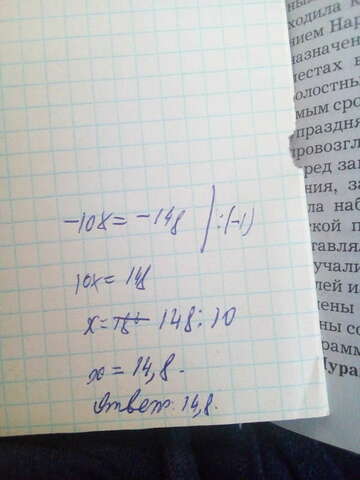 -10x = -148 | :(-1)
10x = 148
x = 148 : 10
x = 14,8.
Ответ: 14,8.
ходила к
нием Нар
назначен
местах в
олостны
мым сро
праздня
провозгл
ред за
ния, за
ла наб
ской п
тавля
учали
лей из
ены
ны со
рамм
Мура